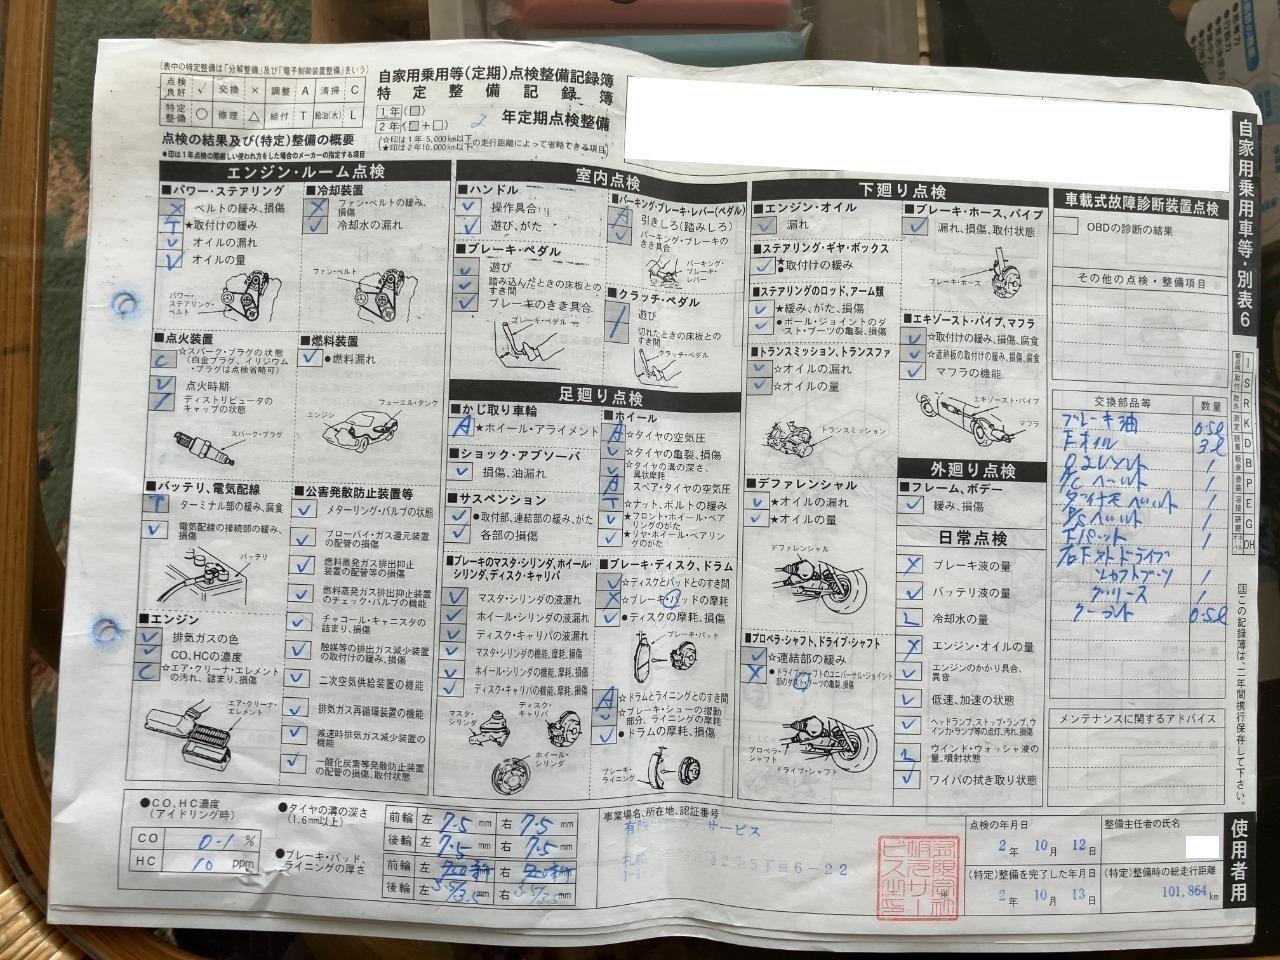 (表中の特定整備は「分解整備」及び「電子制御装置整備」をいう)
点検良好 ✓ 交換 × 調整 A 清掃 C
特定整備 ○ 修理 △ 締付 T 給油(水) L
点検の結果及び(特定)整備の概要
●印は1年点検の際厳しい使われ方をした場合のメーカーの指定する項目
自家用乗用等(定期)点検整備記録簿
特定整備記録簿
1年(□)
2年(□+□)
2 年定期点検整備
(☆印は1年 5,000km以下
★印は2年10,000km以下の走行距離によって省略できる項目)
自家用乗用車等・別表6
エンジン・ルーム点検
■パワー・ステアリング
× ベルトの緩み、損傷
T ★取付けの緩み
✓ オイルの漏れ
✓ オイルの量
パワー・ステアリング・ベルト
■冷却装置
× ファン・ベルトの緩み、損傷
✓ 冷却水の漏れ
ファン・ベルト
■点火装置
C ☆スパーク・プラグの状態
(白金プラグ、イリジウム・プラグは点検省略可)
✓ 点火時期
/ ディストリビュータのキャップの状態
スパーク・プラグ
■燃料装置
✓ ●燃料漏れ
フューエル・タンク
エンジン
■バッテリ、電気配線
T ターミナル部の緩み、腐食
✓ 電気配線の接続部の緩み、損傷
バッテリ
■エンジン
✓ 排気ガスの色
✓ CO、HCの濃度
C ☆エア・クリーナ・エレメントの汚れ、詰まり、損傷
エア・クリーナ・エレメント
■公害発散防止装置等
✓ メターリング・バルブの状態
✓ ブローバイ・ガス還元装置の配管の損傷
✓ 燃料蒸発ガス排出抑止装置の配管等の損傷
✓ 燃料蒸発ガス排出抑止装置のチェック・バルブの機能
✓ チャコール・キャニスタの詰まり、損傷
✓ 触媒等の排出ガス減少装置の取付けの緩み、損傷
✓ 二次空気供給装置の機能
✓ 排気ガス再循環装置の機能
✓ 減速時排気ガス減少装置の機能
✓ 一酸化炭素等発散防止装置の配管の損傷、取付状態
室内点検
■ハンドル
✓ 操作具合
✓ 遊び、がた
■ブレーキ・ペダル
✓ 遊び
✓ 踏み込んだときの床板とのすき間
✓ ブレーキのきき具合
ブレーキ・ペダル
■パーキング・ブレーキ・レバー(ペダル)
A 引きしろ(踏みしろ)
✓ パーキング・ブレーキのきき具合
パーキング・ブレーキ・レバー
■クラッチ・ペダル
/ 遊び
切れたときの床板とのすき間
クラッチ・ペダル
足廻り点検
■かじ取り車輪
A ★ホイール・アライメント
■ショック・アブソーバ
✓ 損傷、油漏れ
■サスペンション
✓ ●取付部、連結部の緩み、がた
✓ 各部の損傷
■ホイール
A ☆タイヤの空気圧
✓ ☆タイヤの亀裂、損傷
✓ ☆タイヤの溝の深さ、異状摩耗
A スペア・タイヤの空気圧
T ☆ナット、ボルトの緩み
✓ ★フロント・ホイール・ベアリングのがた
✓ ★リヤ・ホイール・ベアリングのがた
■ブレーキのマスタ・シリンダ、ホイール・シリンダ、ディスク・キャリパ
✓ マスタ・シリンダの液漏れ
✓ ホイール・シリンダの液漏れ
✓ ディスク・キャリパの液漏れ
✓ マスタ・シリンダの機能、摩耗、損傷
✓ ホイール・シリンダの機能、摩耗、損傷
✓ ディスク・キャリパの機能、摩耗、損傷
マスタ・シリンダ
ディスク・キャリパ
ホイール・シリンダ
■ブレーキ・ディスク、ドラム
✓ ☆ディスクとパッドとのすき間
× ☆ブレーキ・パッドの摩耗
✓ ●ディスクの摩耗、損傷
ブレーキ・パッド
A ☆ドラムとライニングとのすき間
✓ ☆ブレーキ・シューの摺動部分、ライニングの摩耗
✓ ●ドラムの摩耗、損傷
ブレーキ・ライニング
下廻り点検
■エンジン・オイル
✓ 漏れ
■ステアリング・ギヤ・ボックス
✓ ★●取付けの緩み
■ステアリングのロッド、アーム類
✓ ★緩み、がた、損傷
✓ ●ボール・ジョイントのダスト・ブーツの亀裂、損傷
■トランスミッション、トランスファ
✓ ☆オイルの漏れ
✓ ☆オイルの量
トランスミッション
■デファレンシャル
✓ ★オイルの漏れ
✓ ★オイルの量
デファレンシャル
■プロペラ・シャフト、ドライブ・シャフト
✓ ☆連結部の緩み
× ●ドライブ・シャフトのユニバーサル・ジョイント部のダスト・ブーツの亀裂、損傷
プロペラ・シャフト
ドライブ・シャフト
■ブレーキ・ホース、パイプ
✓ 漏れ、損傷、取付状態
ブレーキ・ホース
■エキゾースト・パイプ、マフラ
✓ ☆取付けの緩み、損傷、腐食
✓ ☆遮熱板の取付けの緩み、損傷、腐食
✓ マフラの機能
エキゾースト・パイプ
マフラ
外廻り点検
■フレーム、ボデー
✓ 緩み、損傷
日常点検
× ブレーキ液の量
✓ バッテリ液の量
L 冷却水の量
× エンジン・オイルの量
✓ エンジンのかかり具合、異音
✓ 低速、加速の状態
✓ ヘッドランプ、ストップ・ランプ、ウインカ・ランプ等の点灯、汚れ、損傷
ウインド・ウォッシャ液の量、噴射状態
✓ ワイパの拭き取り状態
車載式故障診断装置点検
OBDの診断の結果
その他の点検・整備項目
交換部品等 数量
ブレーキ油 0.5ℓ
Eオイル 3ℓ
Oエレメント 1
A/Cベルト 1
ダイナモベルト 1
P/Sベルト 1
Fパット 1
右Fストドライブ
シャフトブーツ 1
グリース 1
クーラント 0.5ℓ
メンテナンスに関するアドバイス
注 この記録簿は、二年間携行保存して下さい。
使用者用
●CO、HC濃度
(アイドリング時)
CO 0.1 %
HC 10 ppm
●タイヤの溝の深さ
(1.6mm以上)
前輪 左 7.5 mm 右 7.5 mm
後輪 左 7.5 mm 右 7.5 mm
●ブレーキ・パッド、ライニングの厚さ
前輪 左 mm 右 mm
後輪 左 5.5/3.5 mm 右 5.5/3.5 mm
事業場名、所在地、認証番号
サービス
6-22
点検の年月日
2年 10月 12日
(特定)整備を完了した年月日
2年 10月 13日
整備主任者の氏名
(特定)整備時の総走行距離
101,864 km